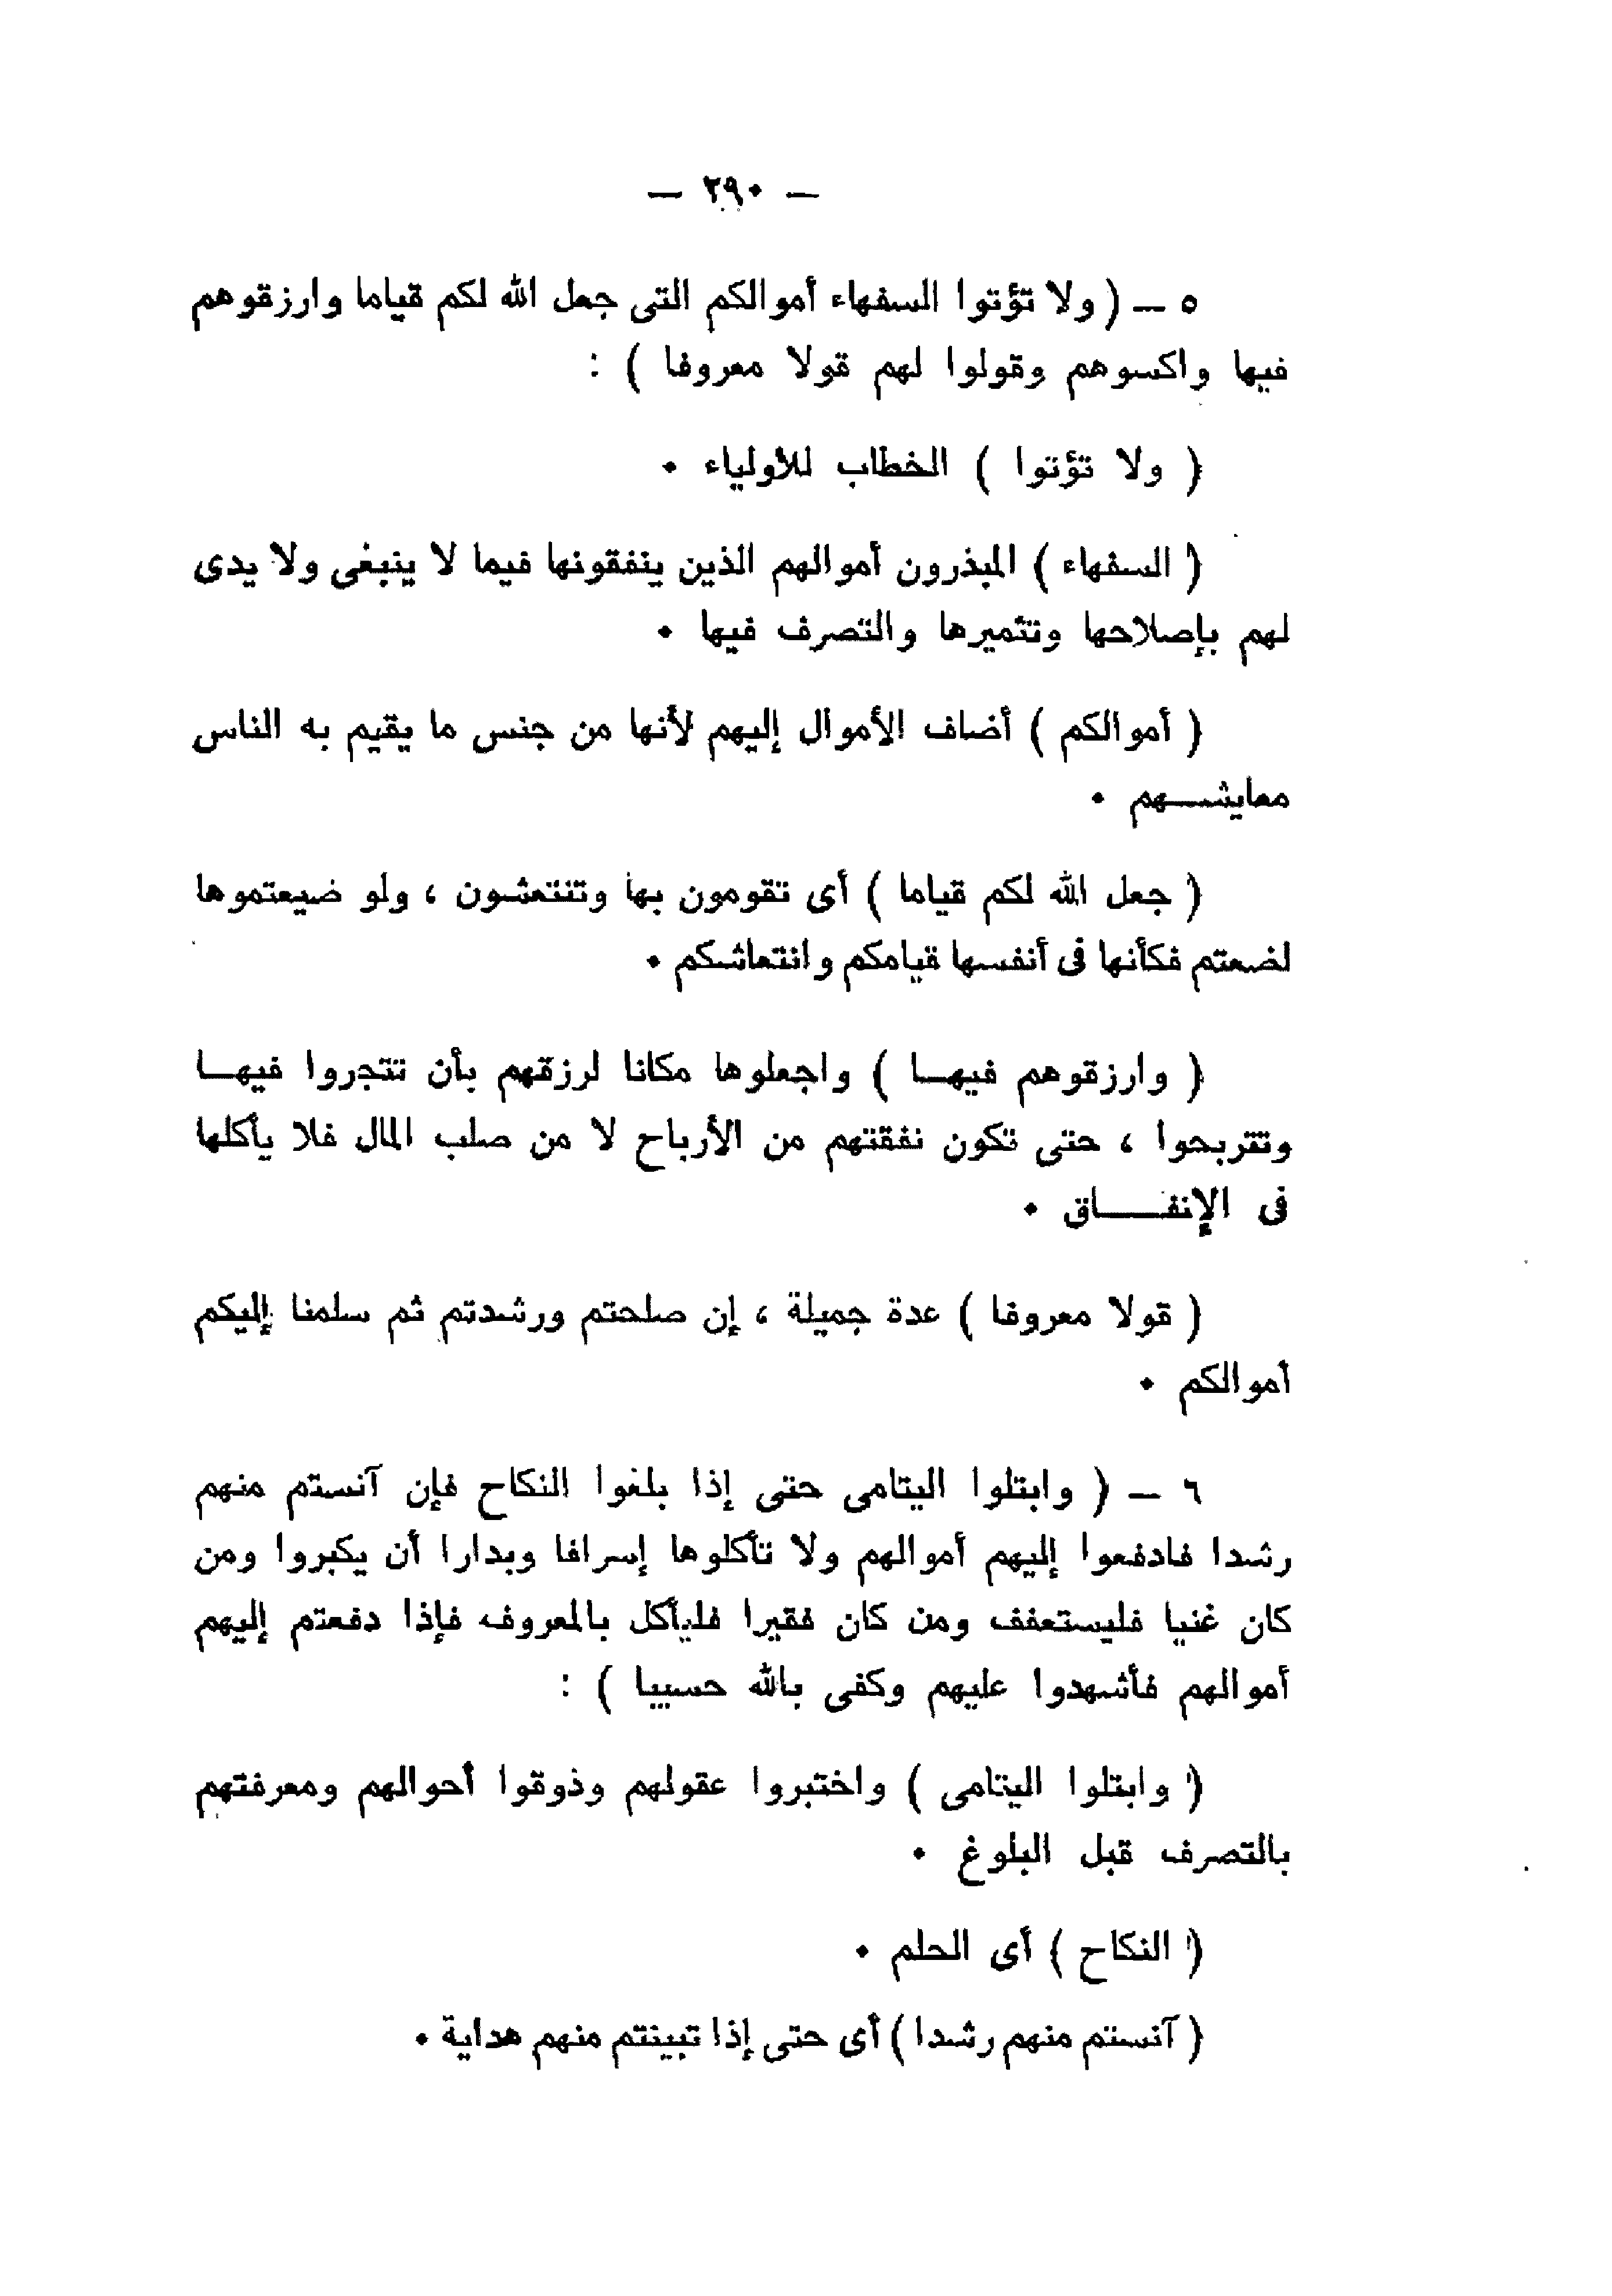 — ٢٩٠ —
٥ — ( ولا تؤتوا السفهاء أموالكم التى جعل الله لكم قياما وارزقوهم
فيها واكسوهم وقولوا لهم قولا معروفا ) :
( ولا تؤتوا ) الخطاب للأولياء .
( السفهاء ) المبذرون أموالهم الذين ينفقونها فيما لا ينبغى ولا يدى
لهم بإصلاحها وتثميرها والتصرف فيها .
( أموالكم ) أضاف الأموال إليهم لأنها من جنس ما يقيم به الناس
معايشهم .
( جعل الله لكم قياما ) أى تقومون بها وتنتعشون ، ولو ضيعتموها
لضعتم فكأنها فى أنفسها قيامكم وانتعاشكم .
( وارزقوهم فيها ) واجعلوها مكانا لرزقهم بأن تتجروا فيها
وتتربحوا ، حتى تكون نفقتهم من الأرباح لا من صلب المال فلا يأكلها
فى الإنفاق .
( قولا معروفا ) عدة جميلة ، إن صلحتم ورشدتم ثم سلمنا إليكم
أموالكم .
٦ — ( وابتلوا اليتامى حتى إذا بلغوا النكاح فإن آنستم منهم
رشدا فادفعوا إليهم أموالهم ولا تأكلوها إسرافا وبدارا أن يكبروا ومن
كان غنيا فليستعفف ومن كان فقيرا فليأكل بالمعروف فإذا دفعتم إليهم
أموالهم فأشهدوا عليهم وكفى بالله حسيبا ) :
( وابتلوا اليتامى ) واختبروا عقولهم وذوقوا أحوالهم ومعرفتهم
بالتصرف قبل البلوغ .
( النكاح ) أى الحلم .
( آنستم منهم رشدا ) أى حتى إذا تبينتم منهم هداية .